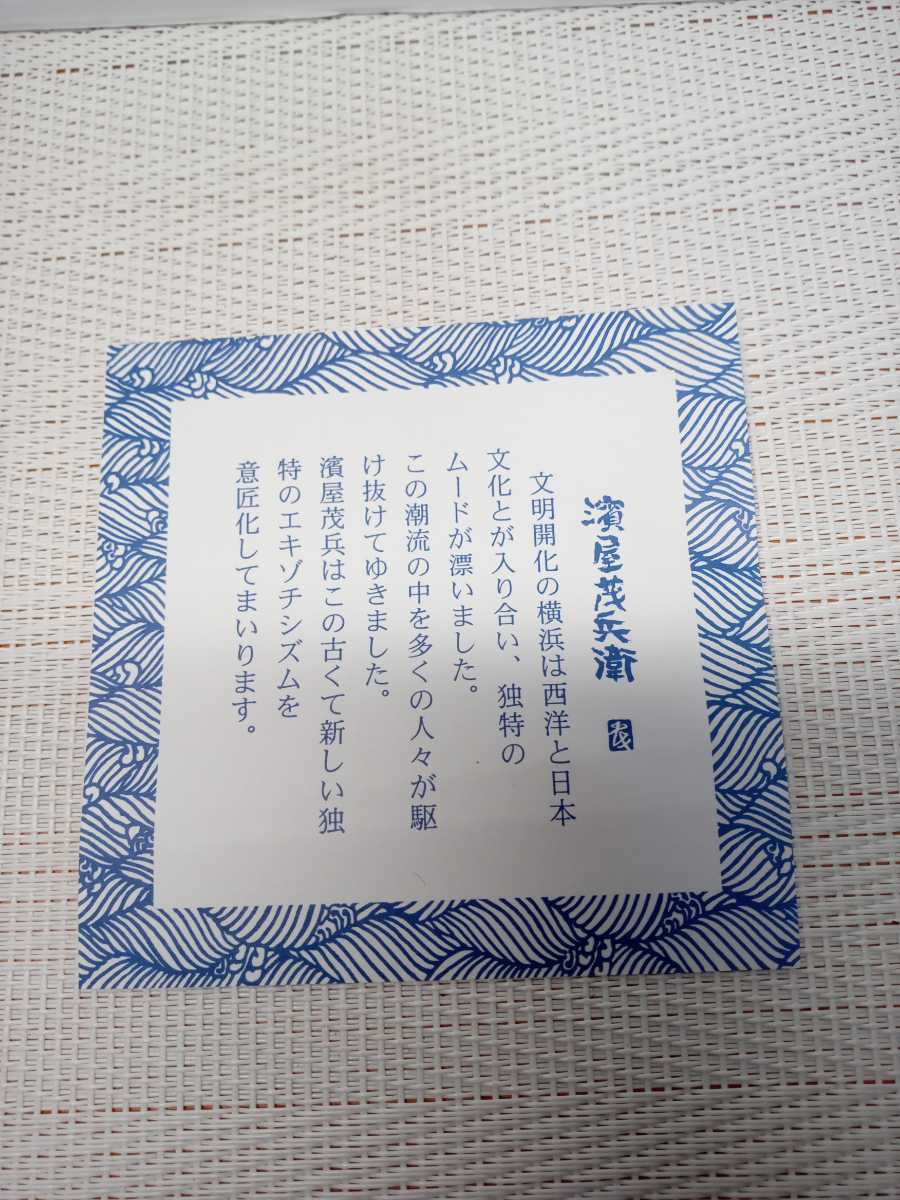 濱屋茂兵衛
茂
文明開化の横浜は西洋と日本
文化とが入り合い、独特の
ムードが漂いました。
この潮流の中を多くの人々が駆
け抜けてゆきました。
濱屋茂兵はこの古くて新しい独
特のエキゾチシズムを
意匠化してまいります。